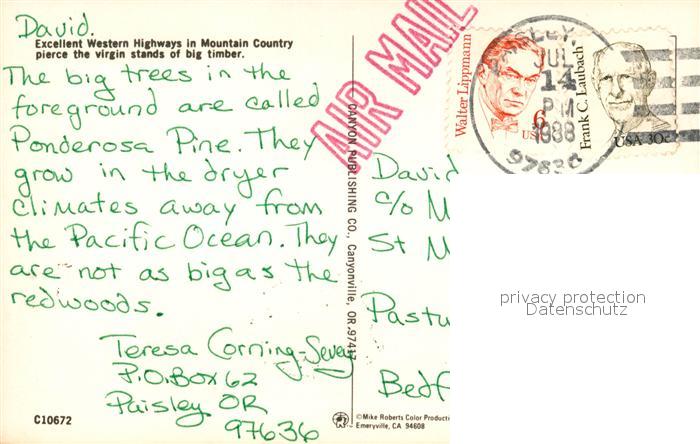 David.
Excellent Western Highways in Mountain Country
pierce the virgin stands of big timber.
The big trees in the
foreground are called
Ponderosa Pine. They
grow in the dryer
climates away from
the Pacific Ocean. They
are not as big as the
redwoods.
Teresa Corning-Sevey
P.O. Box 62
Paisley OR
97636
C10672
CANYON PUBLISHING CO., Canyonville, OR. 97417
AIR MAIL
Walter Lippmann
6
USA
JUL
14
PM
1988
97636
Frank C. Laubach
USA 30c
David
c/o M
St M
Pastu
Bedf
privacy protection
Datenschutz
©Mike Roberts Color Producti
Emeryville, CA 94608